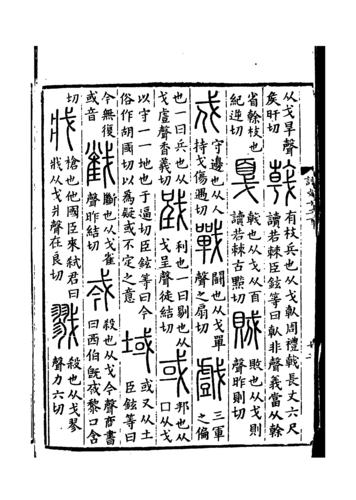 从戈旱聲矣旰切戟有枝兵也从戈倝周禮戟長丈六尺讀若棘臣鉉等曰倝非聲義當从榦
省榦枝也紀逆切戛戟也从戈从百讀若棘古黠切賊敗也从戈則聲昨則切
戍守邊也从人持戈傷遇切戰鬬也从戈單聲之扇切戲三軍之偏
也一曰兵也从戈䖒聲香義切戜利也一曰剔也从戈呈聲徒結切或邦也从口从戈
以守一一地也于逼切臣鉉等曰今俗作胡國切以為疑或不定之意域或又从土臣鉉等曰
今無復或音截斷也从戈雀聲昨結切𢦟殺也从戈今聲商書曰西伯旣𢦟黎口含
切戕槍也他國臣來弑君曰戕从戈爿聲在良切戮殺也从戈翏聲力六切